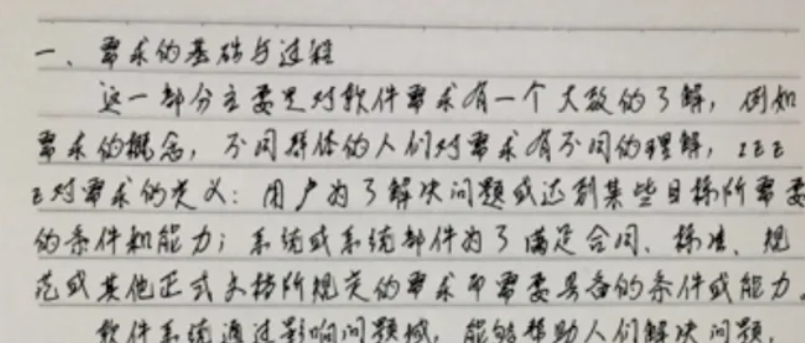 一、需求的基础与过程
这一部分主要是对软件需求有一个大致的了解，例如
需求的概念，不同群体的人们对需求有不同的理解，IEE
E对需求的定义：用户为了解决问题或达到某些目标所需要
的条件和能力；系统或系统部件为了满足合同、标准、规
范或其他正式文档所规定的需求即需要具备的条件或能力。
软件系统通过影响问题域，能够帮助人们解决问题，